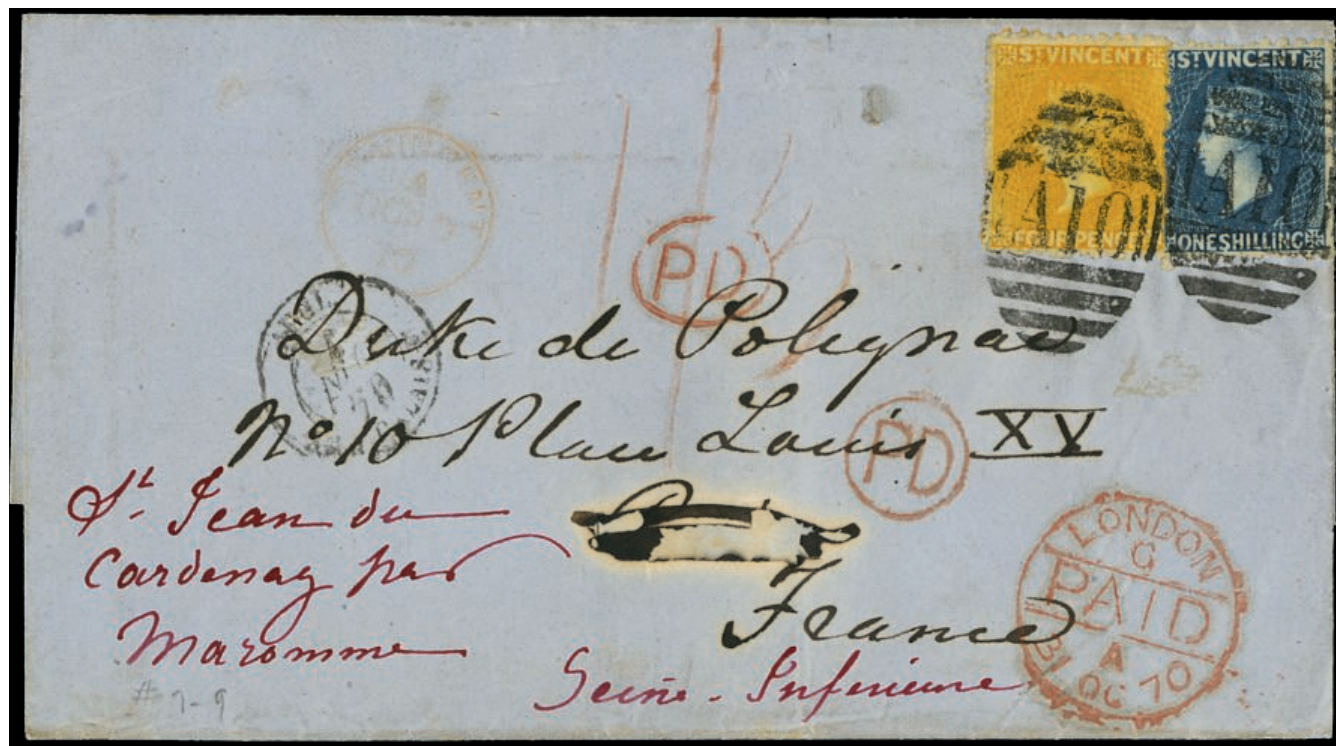 ST VINCENT
FOUR PENCE
A10
ST VINCENT
ONE SHILLING
A10
PD
Duke de Polignac
No 10 Place Louis XV
PD
France
St. Jean du
Cardenay par
Maromme
Seine-Inferieure
LONDON
PAID
A
31 OC 70
# 7-9